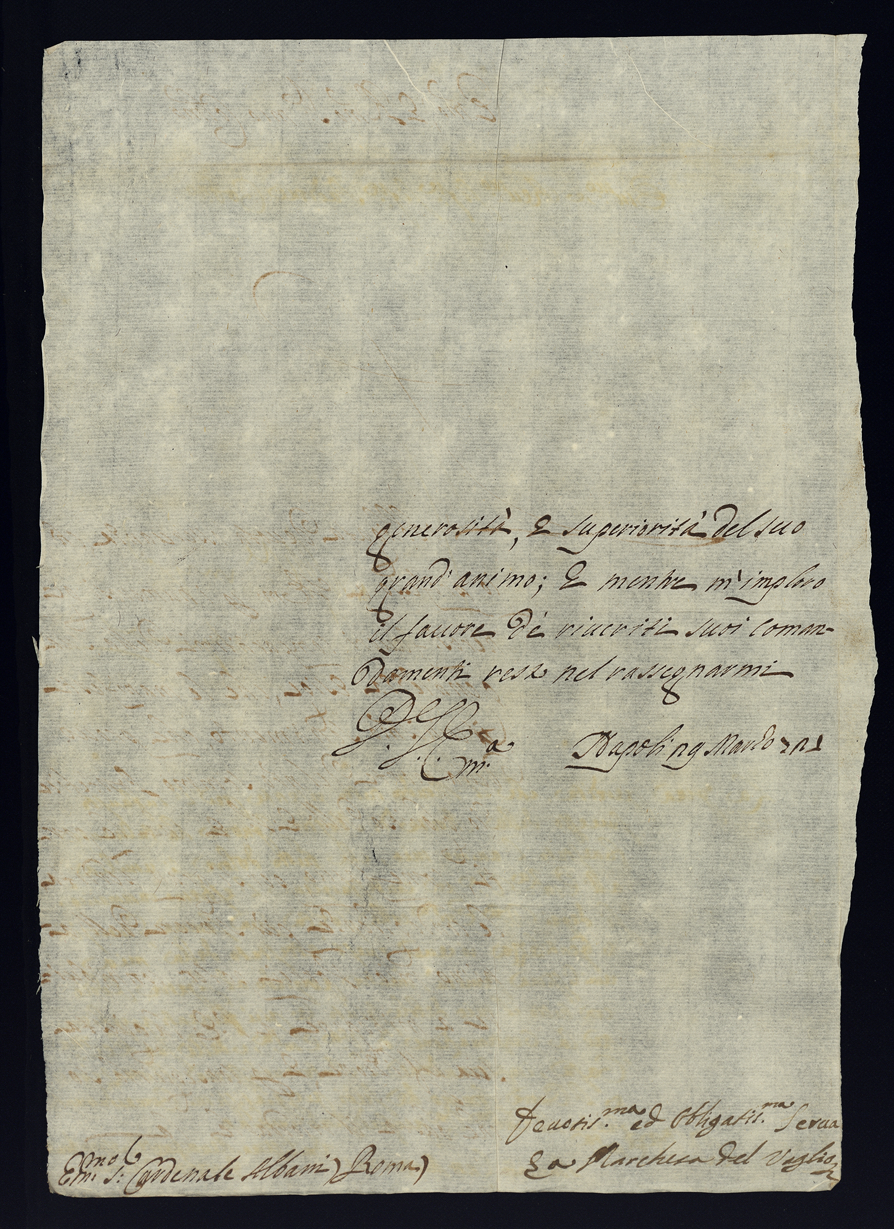 generosità, e superiorità del suo
grand'animo; e mentre m'imploro
il fauore de' riueriti suoi Coman-
damenti resto nel rassegnarmi
D. V. Em.a
Napoli 19 Marzo
Deuotis.ma ed Obbligatis.ma Serua
La Marchesa del Vaglio
Em.mo S.r Cardenale Albani (Roma)